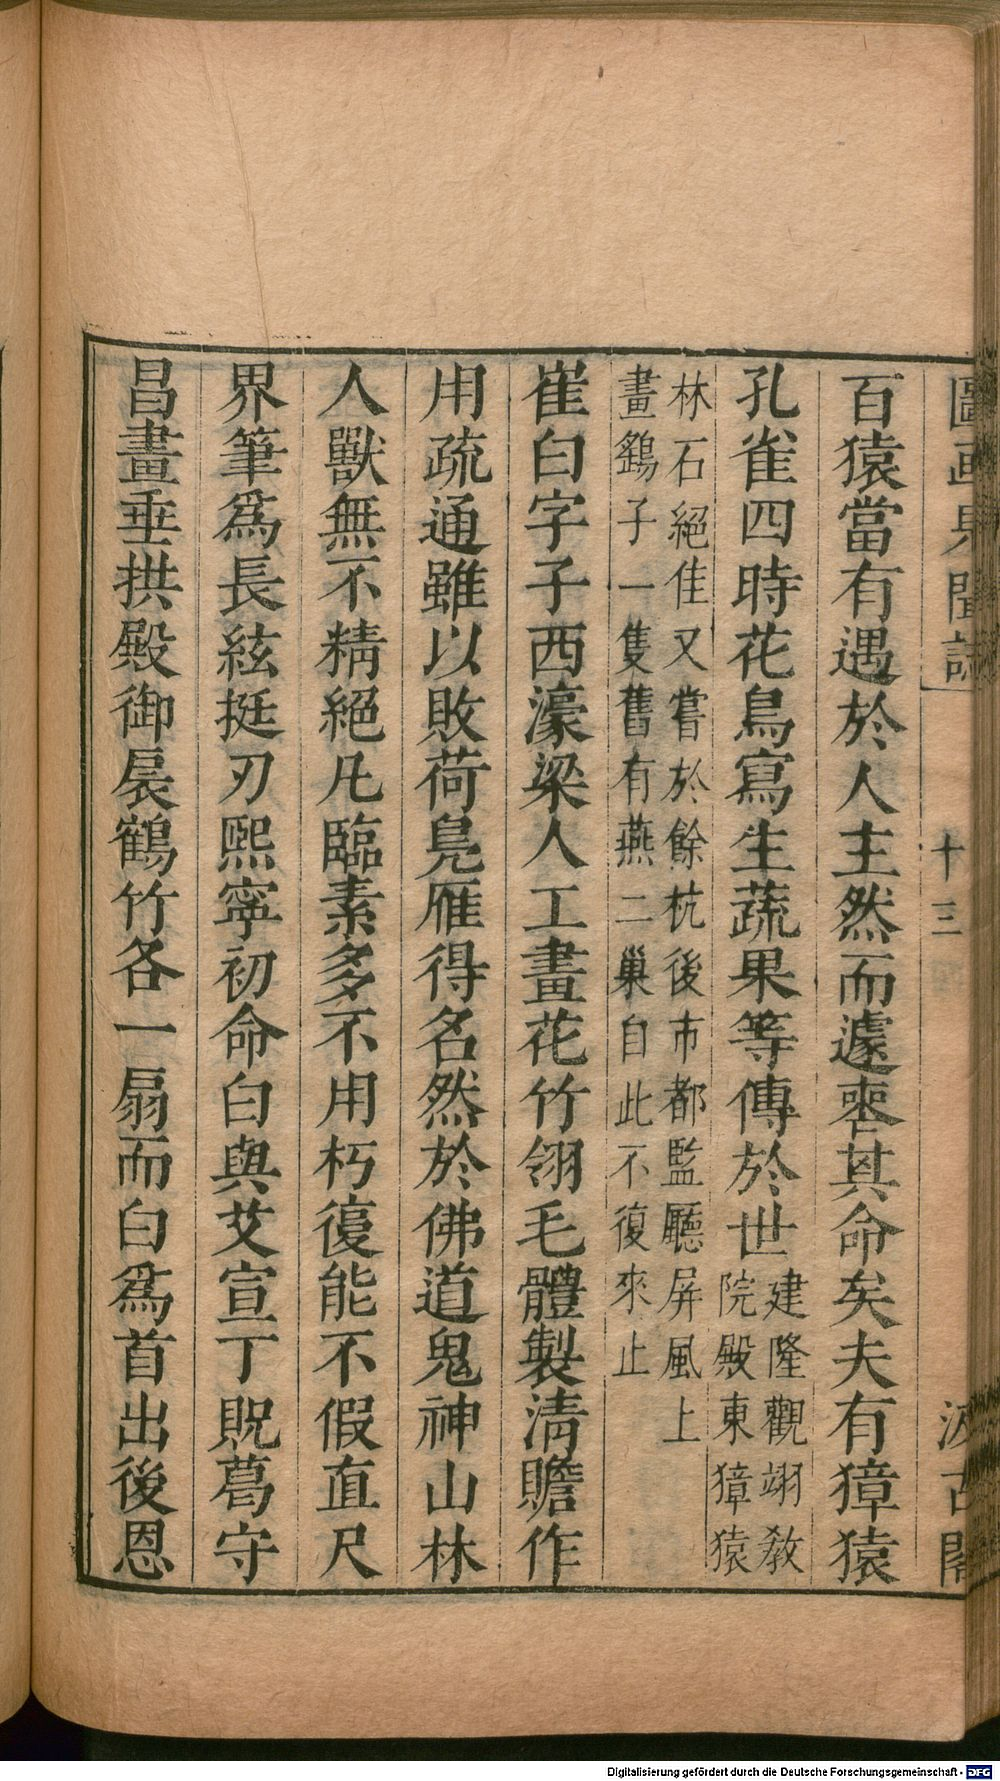 圖畫見聞誌 十三 汲古閣
百猿當有遇於人主然而遽喪其命矣夫有獐猿
孔雀四時花鳥寫生蔬果等傳於世建隆觀翊敎
院殿東獐猿
林石絕佳又嘗於餘杭後市都監廳屏風上
畫鷂子一隻舊有燕二巢自此不復來止
崔白字子西濠梁人工畫花竹翎毛體製淸贍作
用疏通雖以敗荷鳧雁得名然於佛道鬼神山林
人獸無不精絕凡臨素多不用朽復能不假直尺
界筆爲長絃挺刃熙寧初命白與艾宣丁貺葛守
昌畫垂拱殿御扆鶴竹各一扇而白爲首出後恩
Digitalisierung gefördert durch die Deutsche Forschungsgemeinschaft - DFG